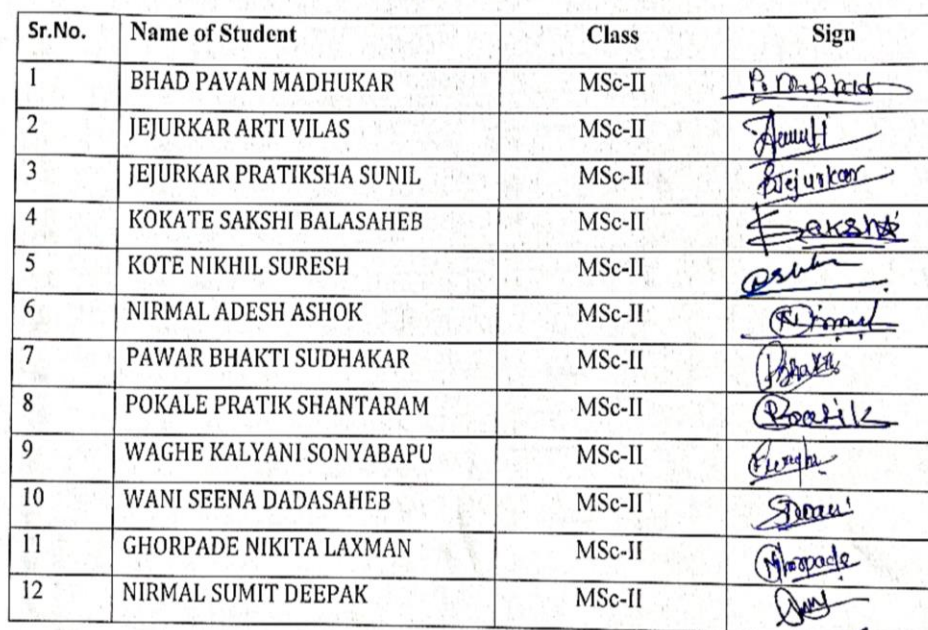 Sr.No. Name of Student Class Sign
1 BHAD PAVAN MADHUKAR MSc-II P. M. Bhad
2 JEJURKAR ARTI VILAS MSc-II
3 JEJURKAR PRATIKSHA SUNIL MSc-II PJejurkar
4 KOKATE SAKSHI BALASAHEB MSc-II Sakshi
5 KOTE NIKHIL SURESH MSc-II
6 NIRMAL ADESH ASHOK MSc-II Nirmal
7 PAWAR BHAKTI SUDHAKAR MSc-II Bhakti
8 POKALE PRATIK SHANTARAM MSc-II Pratik
9 WAGHE KALYANI SONYABAPU MSc-II
10 WANI SEENA DADASAHEB MSc-II
11 GHORPADE NIKITA LAXMAN MSc-II NGhorpade
12 NIRMAL SUMIT DEEPAK MSc-II